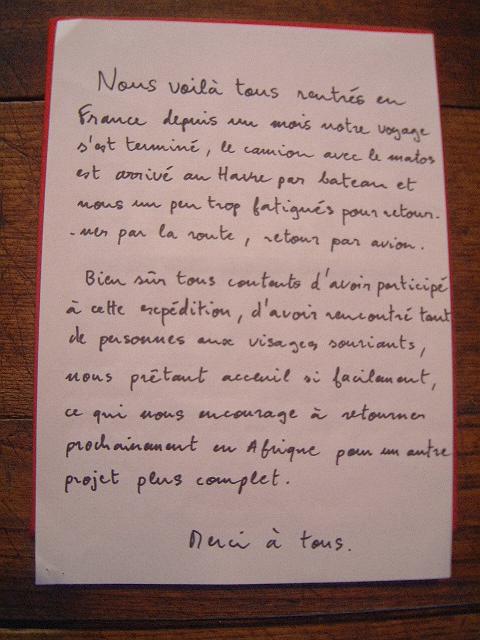 Nous voilà tous rentrés en
France depuis un mois notre voyage
s'est terminé, le camion avec le matos
est arrivé au Havre par bateau et
nous un peu trop fatigués pour retour-
-ner par la route, retour par avion.
Bien sûr tous contents d'avoir participé
à cette expédition, d'avoir rencontré tant
de personnes aux visages souriants,
nous prêtant acceuil si facilement,
ce qui nous encourage à retourner
prochainement en Afrique pour un autre
projet plus complet.
Merci à tous.